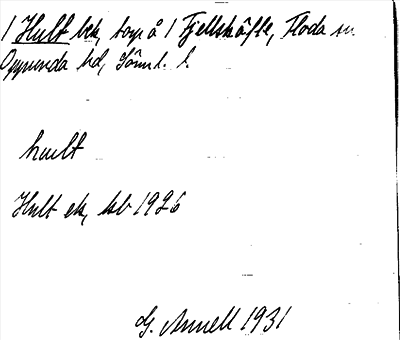 1 Hult bek, torp å 1 Fjellskäfte, Floda sn
Oppunda hd, Södml. l.
hult
Hult ek, kb 1926
G. Annell 1931